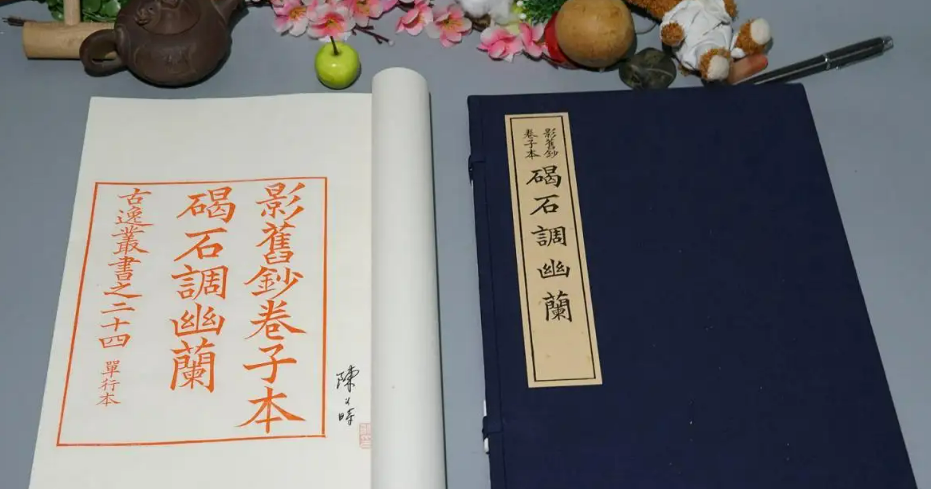 影舊鈔卷子本
碣石調幽蘭
古逸叢書之二十四 單行本
影舊鈔
卷子本
碣石調幽蘭